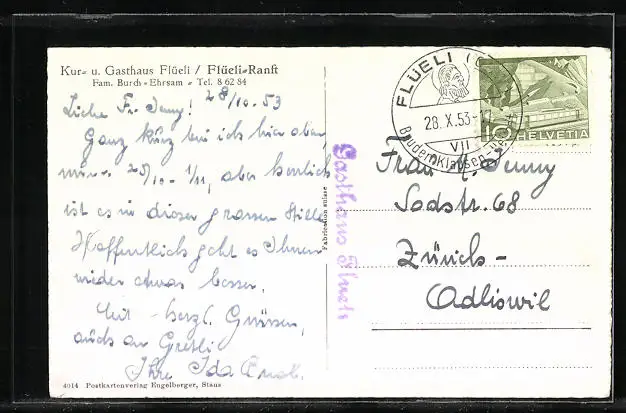 Kur- u. Gasthaus Flüeli / Flüeli-Ranft
Fam. Burch-Ehrsam - Tel. 8 62 84
28/10.53
Liebe Fr. Jenny!
Ganz kurz bin ich hier oben
25/10 - 1/11, aber herrlich
ist es in dieser grossen Stille
Hoffentlich geht es Ihnen
wieder etwas besser.
Mit herzl. Grüssen,
auch an Gretli
Ihre Ida
4014 Postkartenverlag Engelberger, Stans
Fabrication suisse
Gasthaus Flüeli
FLÜELI
28.X.53
VII
Bruderklausen
10 HELVETIA
Frau Jenny
Sodstr. 68
Zürich-
Adliswil